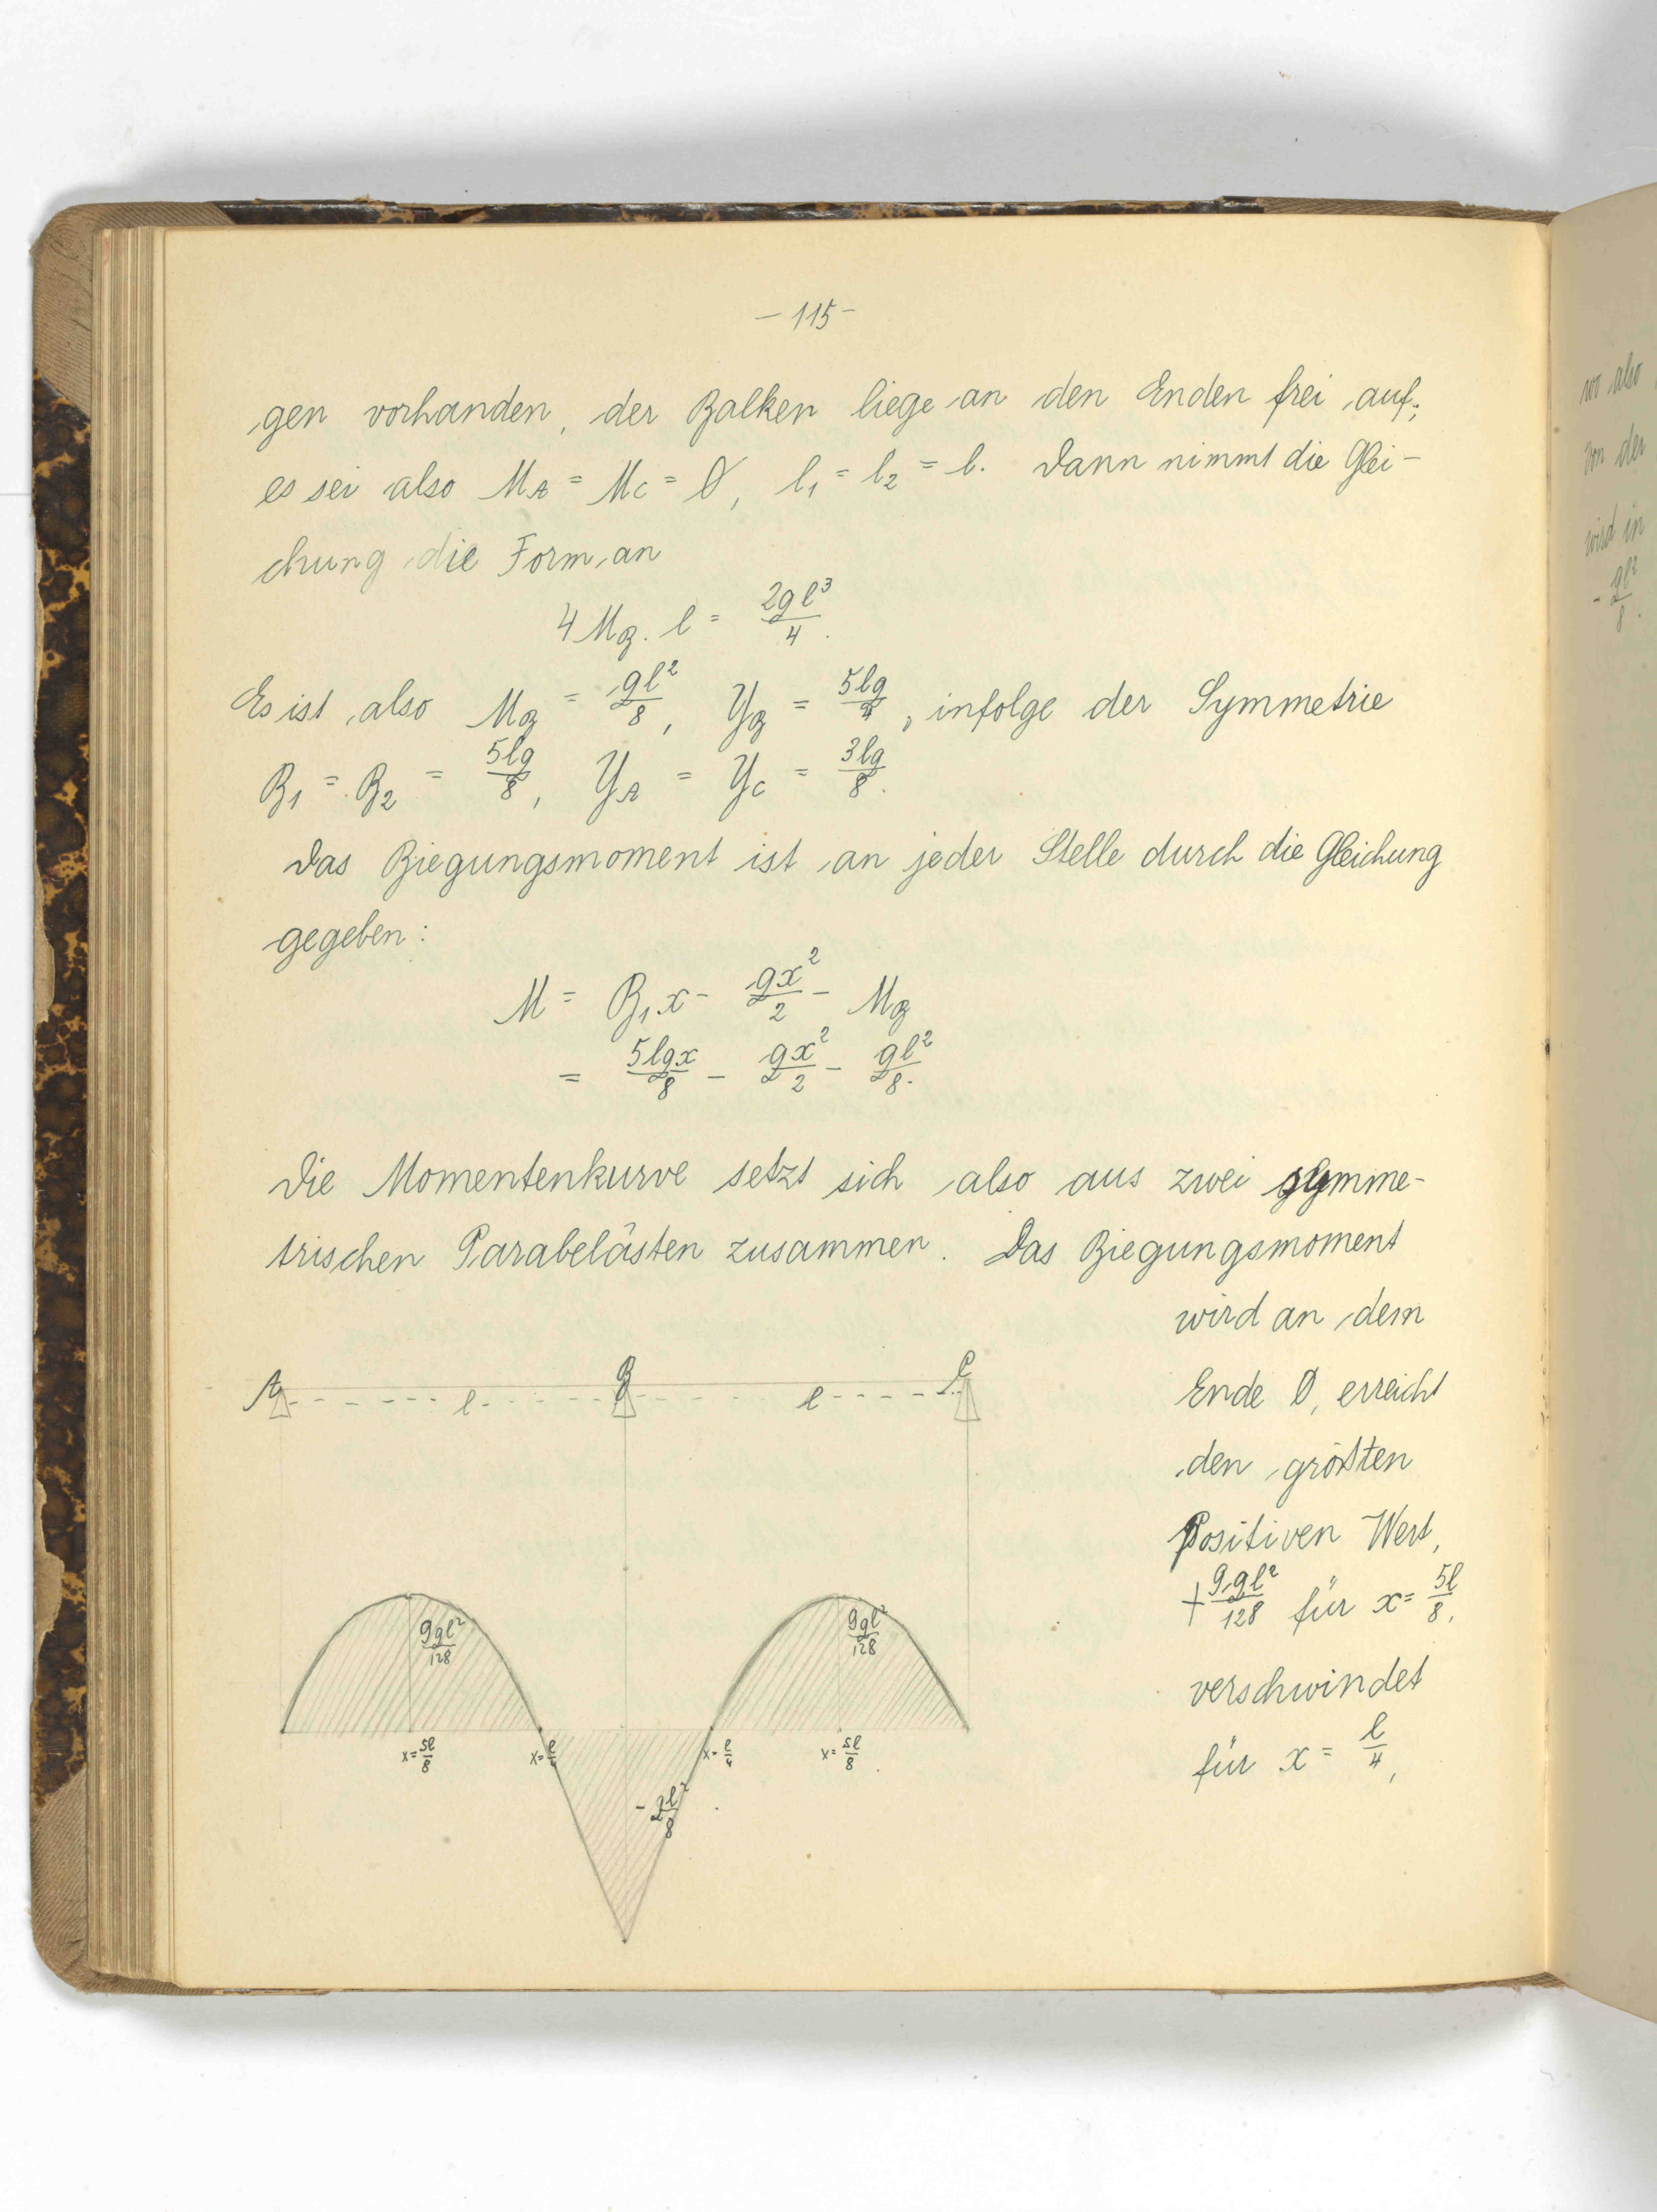 - 115 -
gen vorhanden, der Balken liege an den Enden frei auf;
es sei also M_A = M_C = 0, l_1 = l_2 = l. Dann nimmt die Glei-
chung die Form an
4 M_B . l = 2gl³/4.
Es ist also M_B = gl²/8, Y_B = 5lg/4, infolge der Symmetrie
B_1 = B_2 = 5lg/8, Y_A = Y_C = 3lg/8.
Das Biegungsmoment ist an jeder Stelle durch die Gleichung
gegeben:
M = B_1 x - gx²/2 - M_B
= 5lgx/8 - gx²/2 - gl²/8.
Die Momentenkurve setzt sich also aus zwei symme-
trischen Parabelästen zusammen. Das Biegungsmoment
wird an dem
Ende 0, erreicht
den größten
Positiven Wert,
+ 9gl²/128 für x = 5l/8,
verschwindet
für x = l/4,
A B C
l l
9gl²/128 9gl²/128
x = 5l/8 x = l/4 x = l/4 x = 5l/8
- gl²/8
wo also
von der
wird in
- gl²/8.